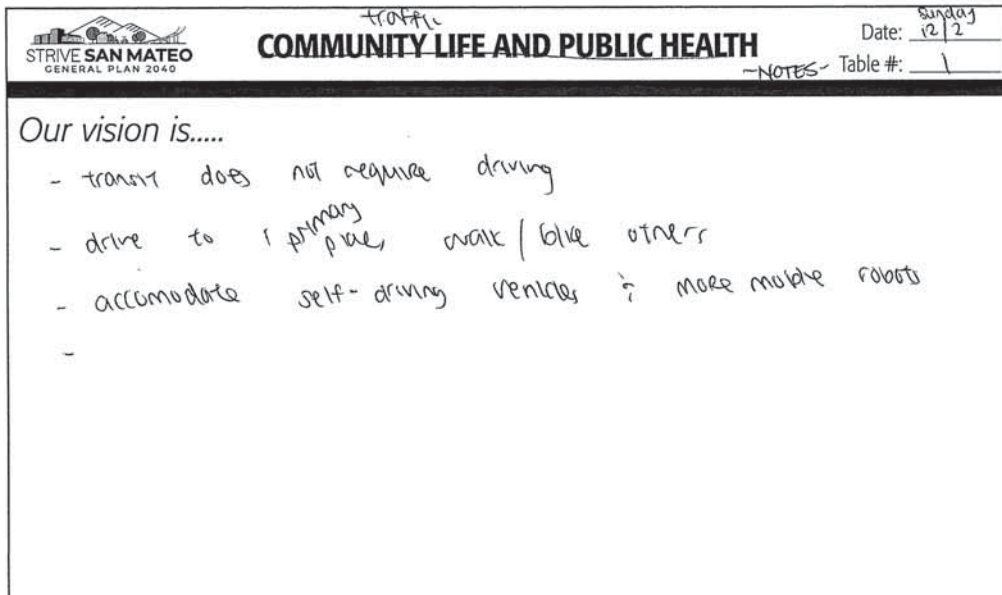 traffic
STRIVE SAN MATEO
GENERAL PLAN 2040
COMMUNITY LIFE AND PUBLIC HEALTH
~NOTES~
Date: Sunday 12/2
Table #: 1
Our vision is.....
- transit does not require driving
- drive to 1 primary place, walk / bike others
- accomodate self-driving vehicles & more mobile robots
-